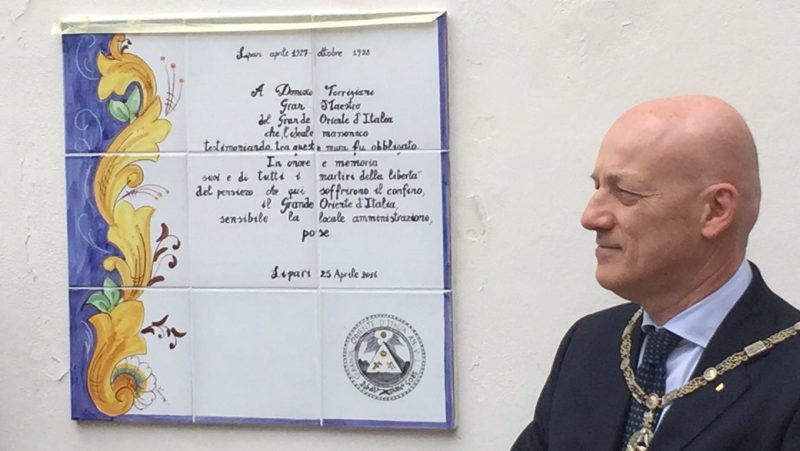 Lipari aprile 1927 ottobre 1928
A Domizio Torrigiani
Gran Maestro
del Grande Oriente d'Italia
che, l'ideale massonico
testimoniando, tra queste mura fu obbligato.
In onore e memoria
suoi e di tutti i martiri della libertà
del pensiero che qui soffrirono il confino,
il Grande Oriente d'Italia,
sensibile la locale amministrazione,
pose.
Lipari 25 Aprile 2016
GRANDE ORIENTE D'ITALIA